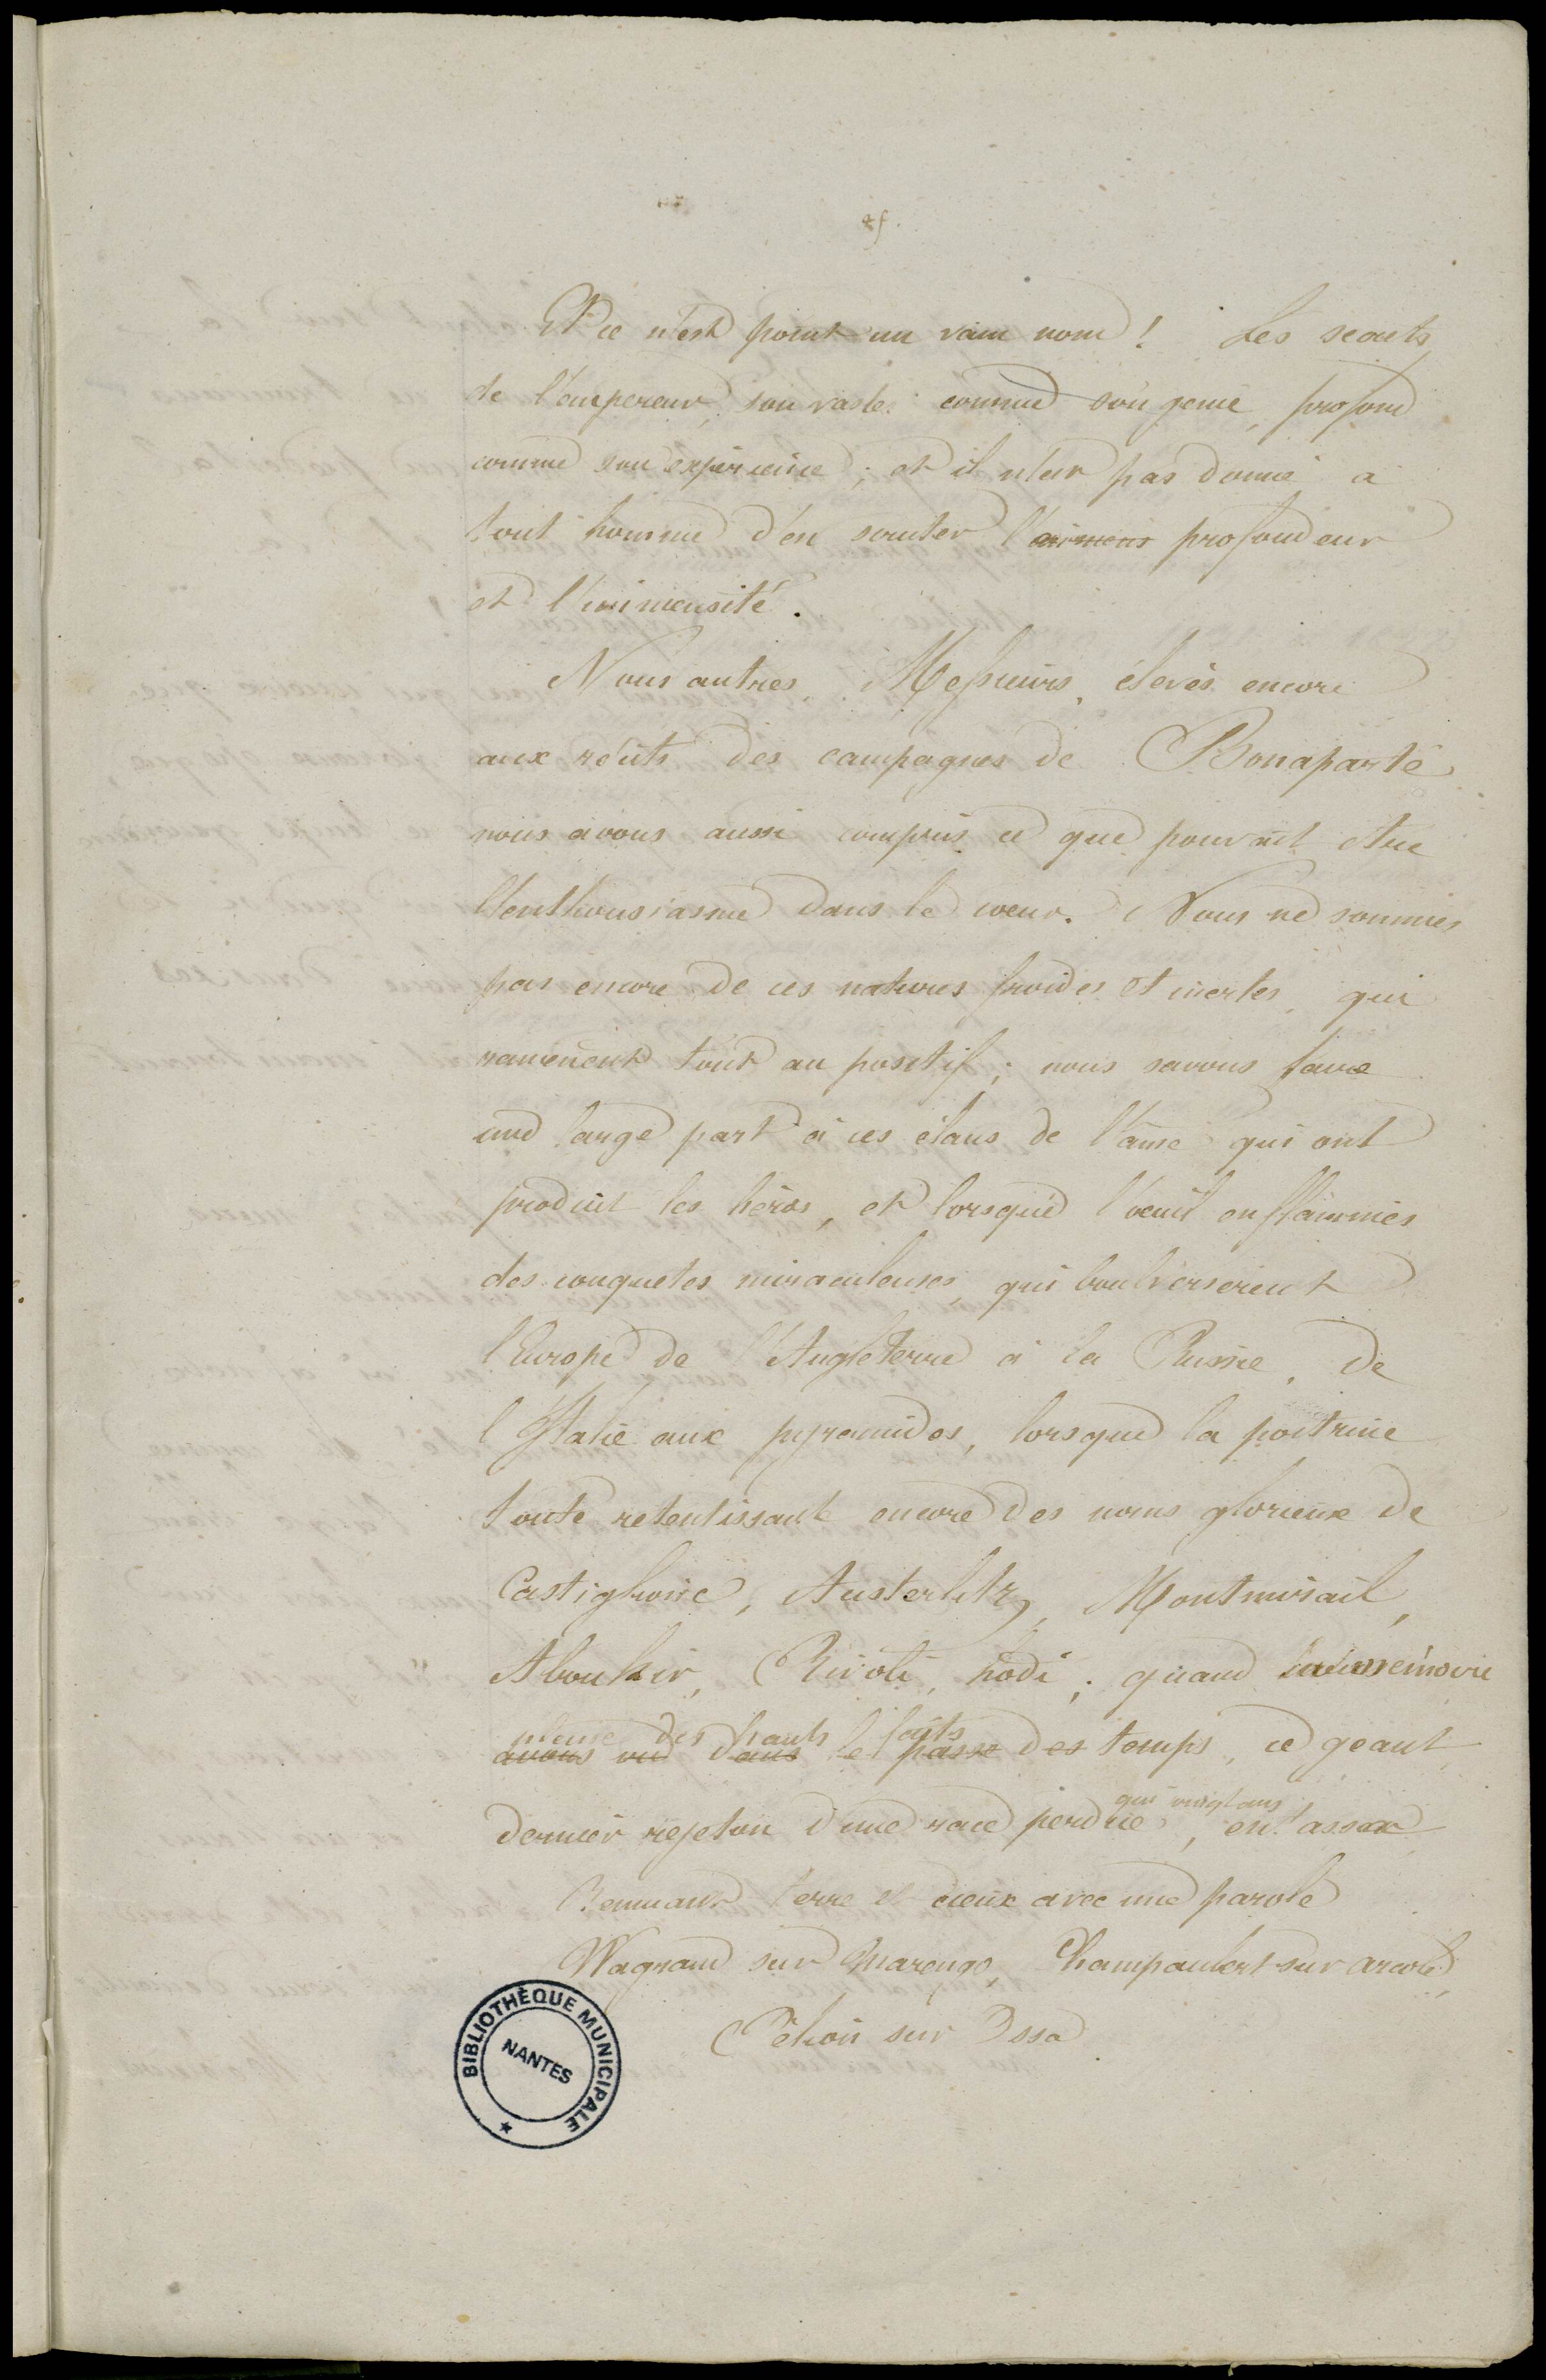 Et ce n'est point un vain nom ! Les secrets
de l'empereur, son vastes comme son genie, profond
comme son expérience ; et il n'est pas donné a
tout homme d'en scruter l'immens profondeur
et l'immensité.
Nous autres, Messieurs, élevés encore
aux récits des campagnes de Bonaparte
nous avons aussi compris ce que pouvait etre
l'enthousiasme dans le coeur. Nous ne sommes
pas encore de ces natures froides et inertes, qui
ramenent tout au positif ; nous savons faire
une large part à ces élans de l'âme qui ont
produit les héros, et lorsque l'oeuil enflammés
des conquetes miraculeuses, qui boulverserent
l'Europe de l'Angleterre à la Russie, de
l'Italie aux pyramides, lorsque la poitrine
toute retentissante encore des noms glorieux de
Castiglione, Austerlitz, Montmirail,
Aboukir, Rivoli, Lodi ; quand la mémoire
pleine des hauts faits
avons vu dans le passe des temps, ce geant
qui vingt ans
dernier rejeton d'une race perdue, entassa
Remuant terre et cieux avec une parole
Wagram sur Marengo, Champaubert sur arcole,
Pélion sur Ossa
BIBLIOTHÈQUE MUNICIPALE
NANTES